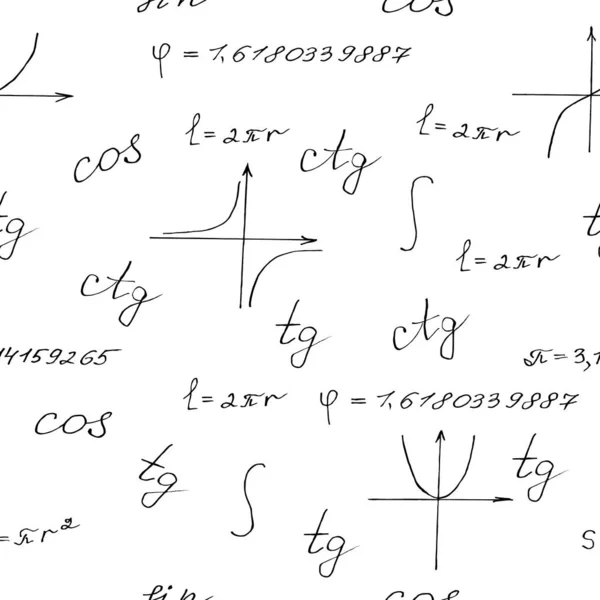 sin
cos
φ = 1,6180339887
l = 2πr
l = 2πr
cos
ctg
tg
tg
∫
l = 2πr
ctg
tg
ctg
14159265
π = 3,1
l = 2πr
φ = 1,6180339887
cos
tg
tg
∫
tg
= πr²
S
sin
cos